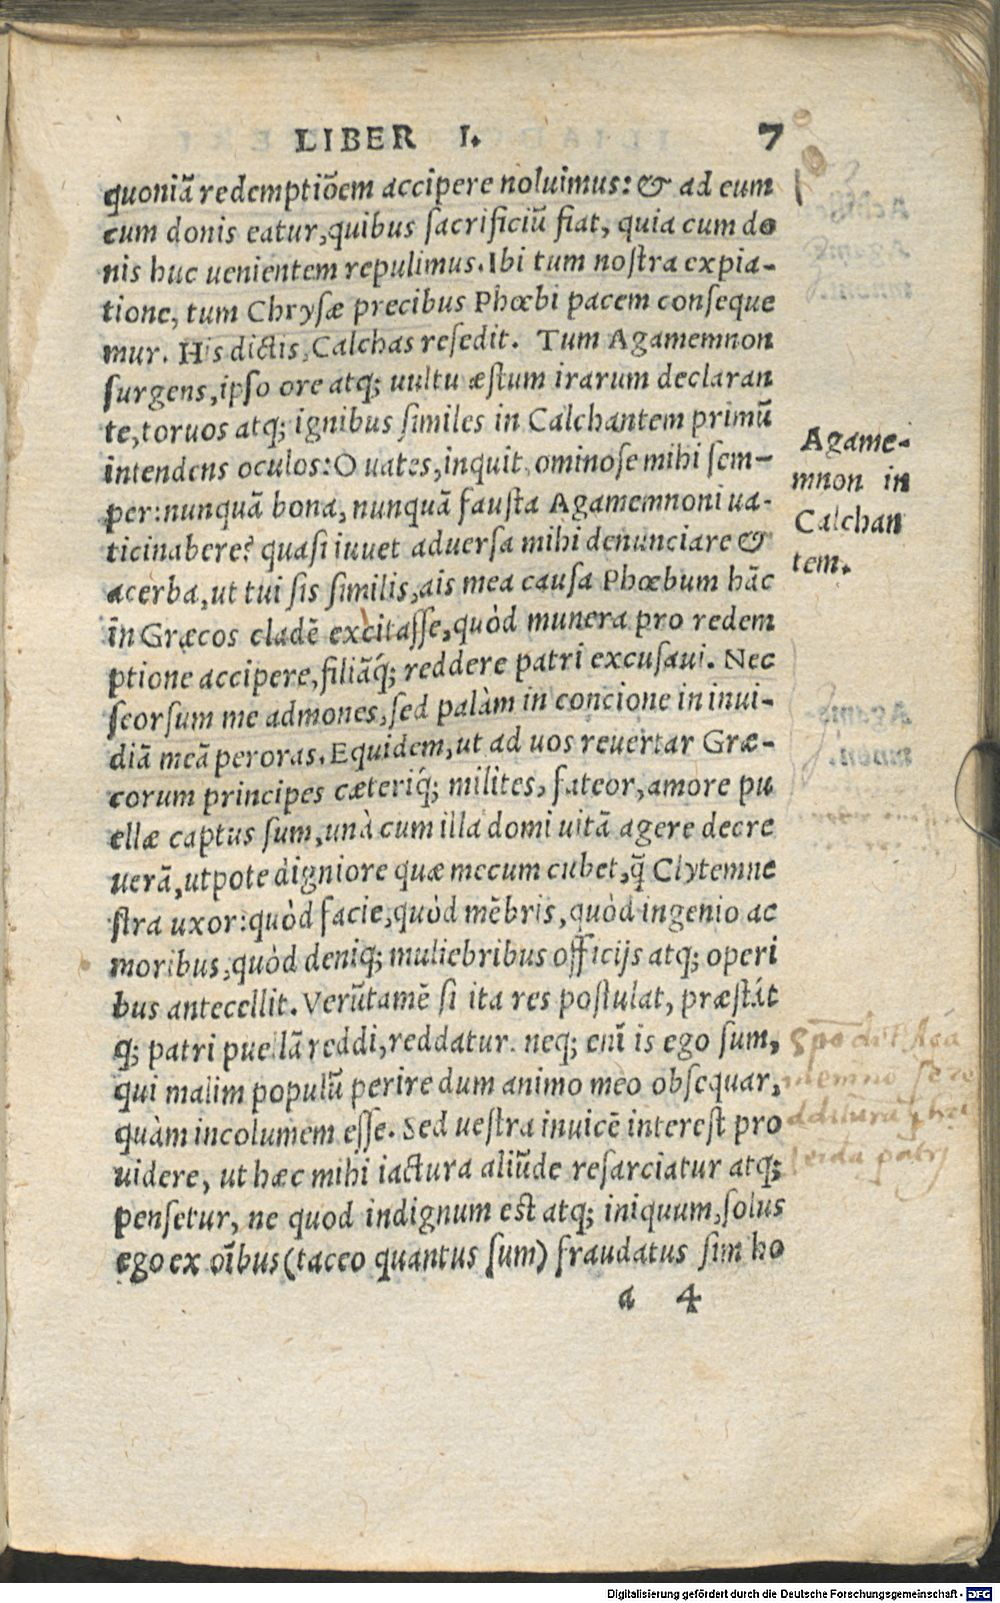 LIBER I. 7
quoniã redemptiõem accipere noluimus: & ad eum
cum donis eatur, quibus sacrificiũ fiat, quia cum do
nis huc uenientem repulimus. Ibi tum nostra expia-
tione, tum Chrysæ precibus Phœbi pacem conseque
mur. His dictis, Calchas resedit. Tum Agamemnon
surgens, ipso ore atq; uultu æstum irarum declaran
te, toruos atq; ignibus similes in Calchantem primũ
intendens oculos: O uates, inquit, ominose mihi sem-
per: nunquã bona, nunquã fausta Agamemnoni ua-
ticinabere? quasi iuuet aduersa mihi denunciare &
acerba, ut tui sis similis, ais mea causa Phœbum hãc
in Græcos cladẽ excitasse, quòd munera pro redem
ptione accipere, filiãq́; reddere patri excusaui. Nec
seorsum me admones, sed palàm in concione in inui-
diã meã peroras. Equidem, ut ad uos reuertar Græ-
corum principes cæteriq́; milites, fateor, amore pu
ellæ captus sum, unà cum illa domi uitã agere decre
uerã, utpote digniore quæ mecum cubet, q̃ Clytemne
stra uxor: quòd facie, quòd mẽbris, quòd ingenio ac
moribus, quòd deniq; muliebribus officijs atq; operi
bus antecellit. Verũtamẽ si ita res postulat, præstát
q; patri puellã reddi, reddatur. neq; enĩ is ego sum,
qui malim populũ perire dum animo meo obsequar,
quàm incolumem esse. Sed uestra inuicẽ interest pro
uidere, ut hæc mihi iactura aliũde resarciatur atq;
pensetur, ne quod indignum est atq; iniquum, solus
ego ex oĩbus (taceo quantus sum) fraudatus sim ho
a 4
Agame-
mnon in
Calchan
tem.
patrj
Digitalisierung gefördert durch die Deutsche Forschungsgemeinschaft - DFG